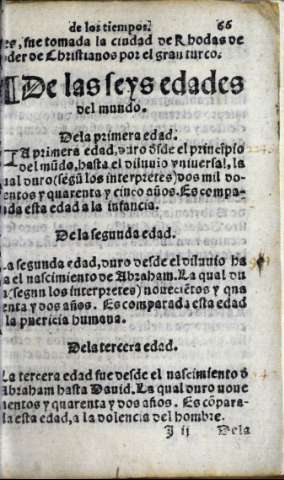 de los tiempos. 66
es, fue tomada la ciudad de Rhodas de
der de Christianos por el gran turco.
¶ De las seys edades
del mundo.
De la primera edad.
LA primera edad, duro d̃sde el principio
del mũdo, hasta el diluuio vniuersal, la
ual duro (segũ los interpretes) dos mil do-
entos y quarenta y cinco años. Es compa-
ada esta edad a la infancia.
De la segunda edad.
La segunda edad, duro desde el diluuio ha
a el nascimiento de Abraham. La qual du
a (segun los interpretes) noueciẽtos y qua
enta y dos años. Es comparada esta edad
la puericia humana.
De la tercera edad.
La tercera edad fue desde el nascimiento d̃
Abraham hasta Dauid. La qual duro noue
ientos y quarenta y dos años. Es cõpara-
la esta edad, a la dolencia del hombre.
I ij Dela